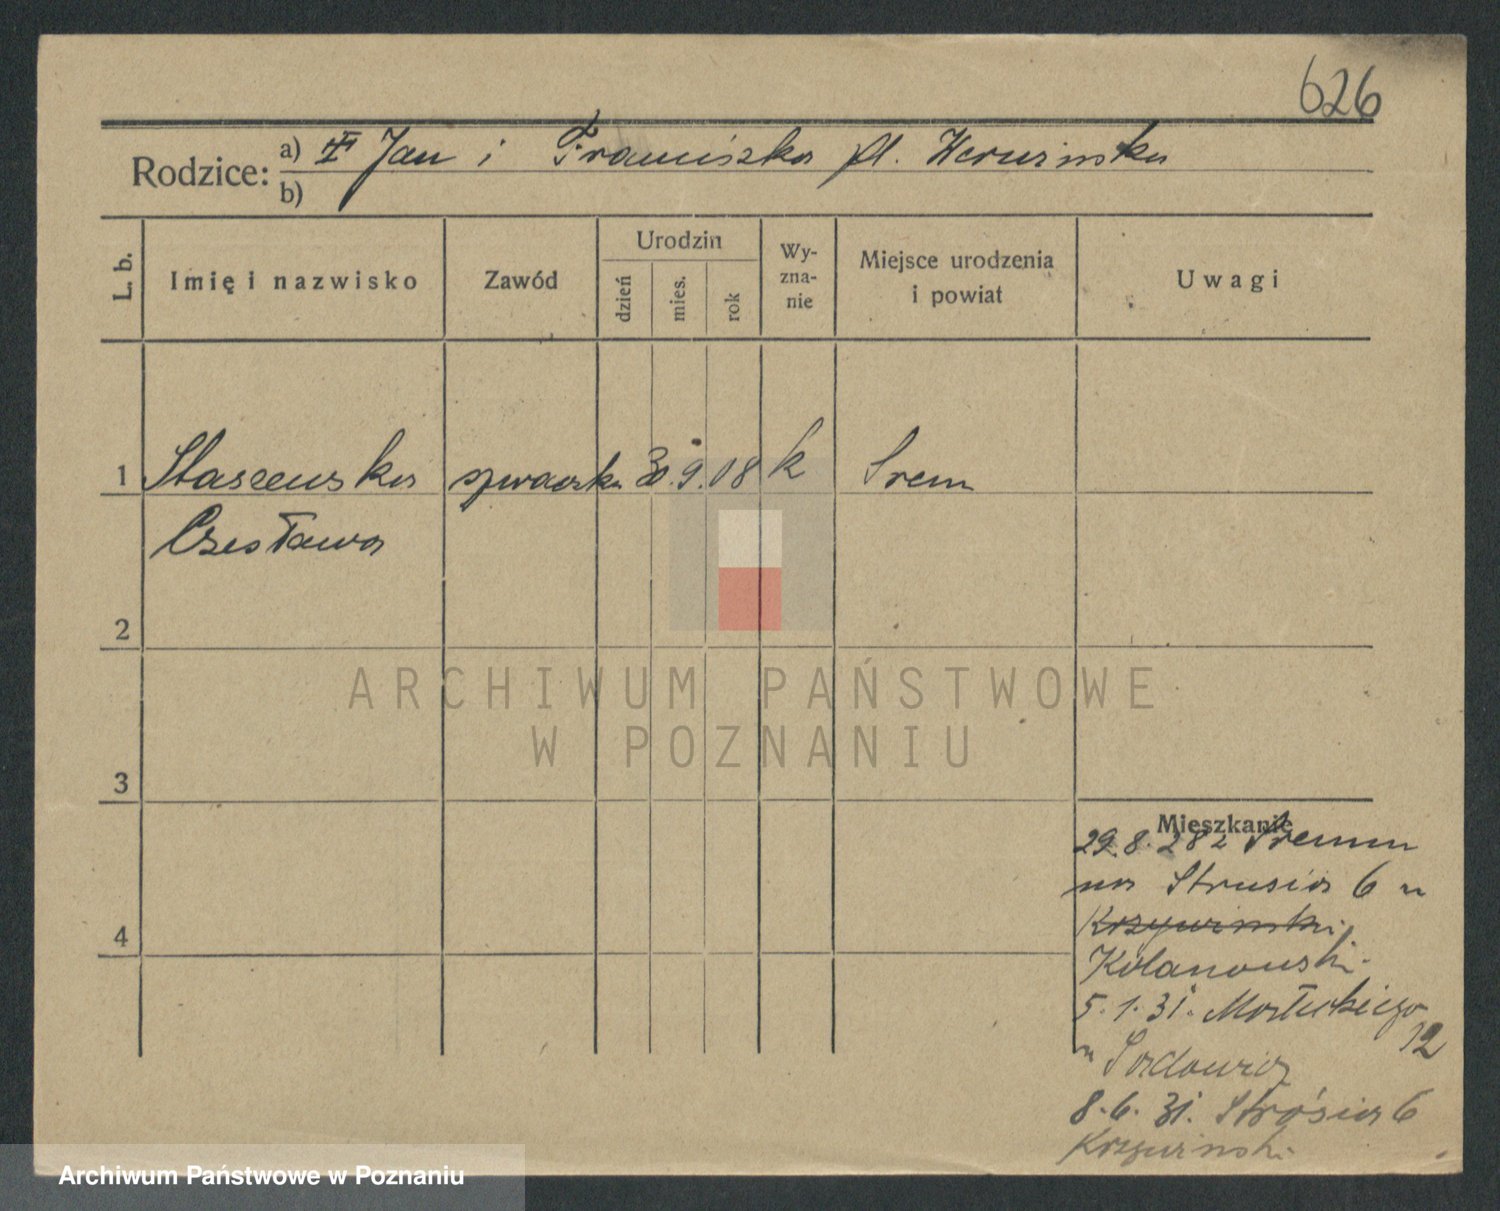 626
Rodzice: a) Jan i Franciszka
b)
L. b.
Imię i nazwisko
Zawód
Urodzin
dzień
mies.
rok
Wy-
zna-
nie
Miejsce urodzenia
i powiat
Uwagi
1 Staszewska szwaczka 30. 9. 08 k Śrem
Czesława
2
3
4
Mieszkanie
29.8.28 z Śremu
na Strusia 6 u
Krzywiński
Kolanowski
5.1.31. Małeckiego
12
u
8.6.31. Strusia 6
Krzywiński
ARCHIWUM PAŃSTWOWE
W POZNANIU
Archiwum Państwowe w Poznaniu